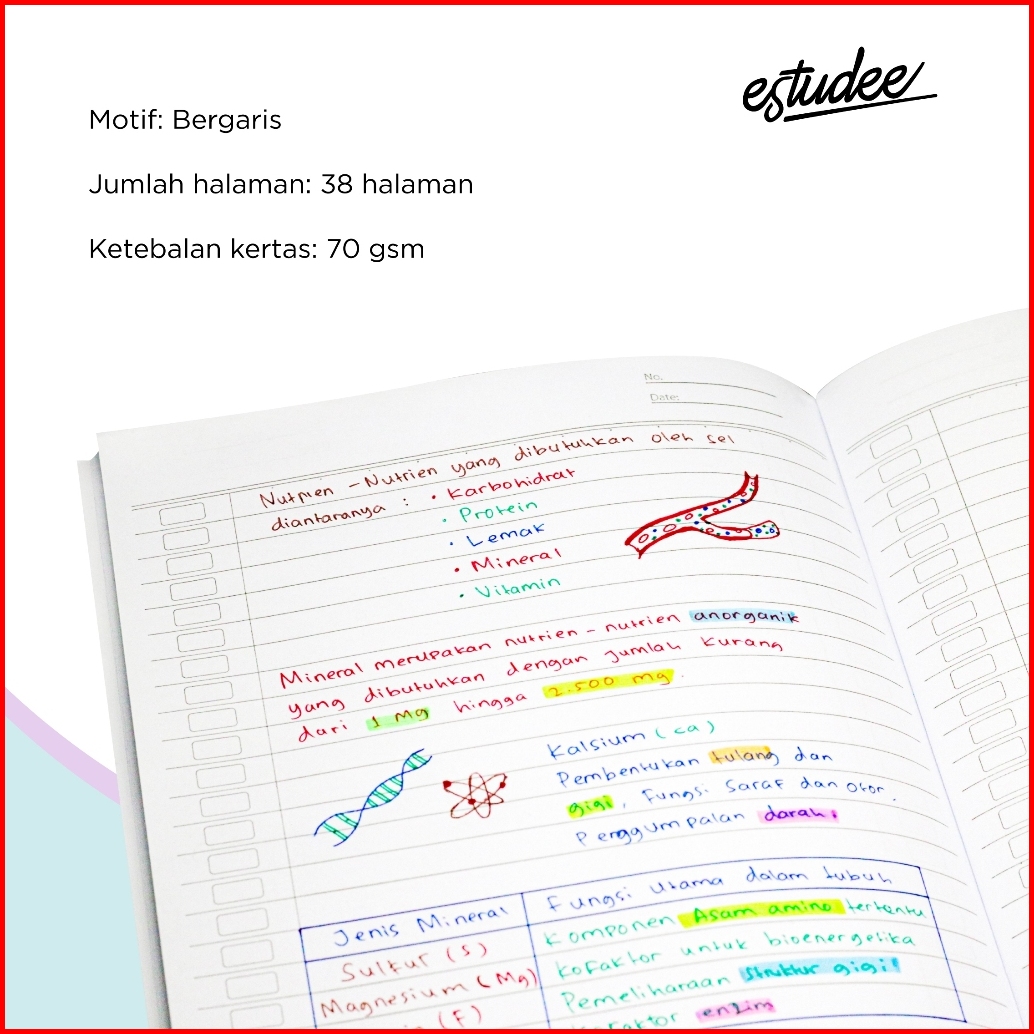 estudee
Motif: Bergaris
Jumlah halaman: 38 halaman
Ketebalan kertas: 70 gsm
No.
Date:
Nutrien - Nutrien yang dibutuhkan oleh sel
diantaranya : • Karbohidrat
• Protein
• Lemak
• Mineral
• Vitamin
Mineral merupakan nutrien - nutrien anorganik
yang dibutuhkan dengan jumlah kurang
dari 1 Mg hingga 2.500 mg.
Kalsium (ca)
Pembentukan tulang dan
gigi, Fungsi Saraf dan otot.
Penggumpalan darah;
Jenis Mineral
Fungsi Utama dalam tubuh
Sulfur (S)
Komponen Asam amino tertentu
Magnesium (Mg)
Kofaktor untuk bioenergetika
(F)
Pemeliharaan Struktur gigi!
enzim